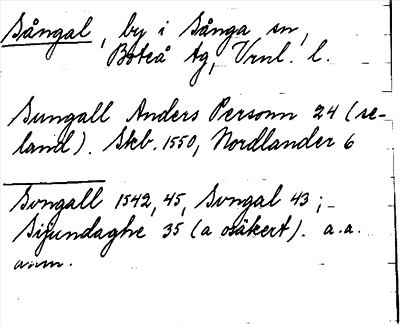 Sångal, by i Sånga sn,
Boteå tg, Vrnl. l.
Sungall Anders Personn 24 (se-
land). Skb. 1550, Nordlander 6
Songall 1542, 45, Songal 43;
35 (a osäkert). a.a.
anm.